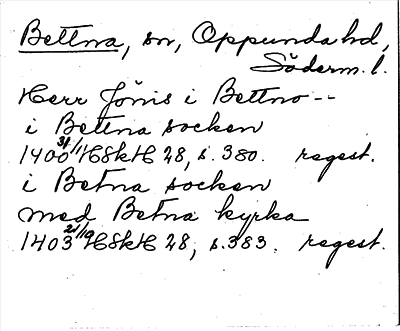 Bettna, sn, Oppunda hd,
Söderm. l.
Herr Jönis i Bettno --
i Bettna socken
1400 31/1 HSkH 28, s. 380. regest.
i Betna socken
med Betna kyrka
1403 21/10 HSkH 28, s. 383. regest.